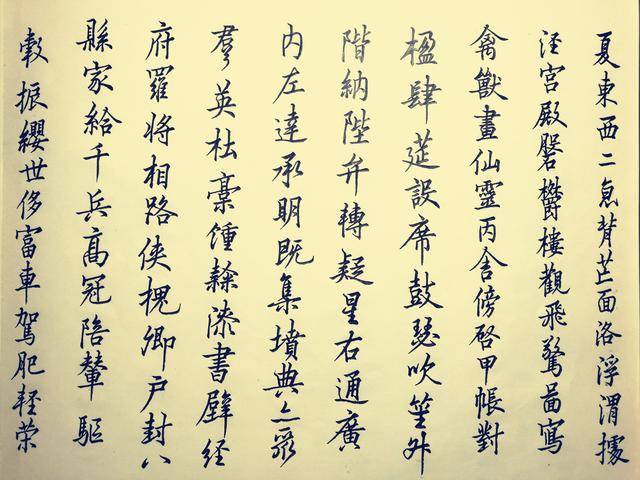 夏東西二京背芒面洛浮渭據
涇宮殿盤鬱樓觀飛驚圖寫
禽獸畫仙靈丙舍傍啓甲帳對
楹肆筵設席鼓瑟吹笙升
階納陛弁轉疑星右通廣
内左達承明既集墳典亦聚
羣英杜稾鍾隸漆書壁経
府羅将相路侠槐卿戶封八
縣家給千兵高冠陪輦驅
轂振纓世侈富車駕肥輕荣